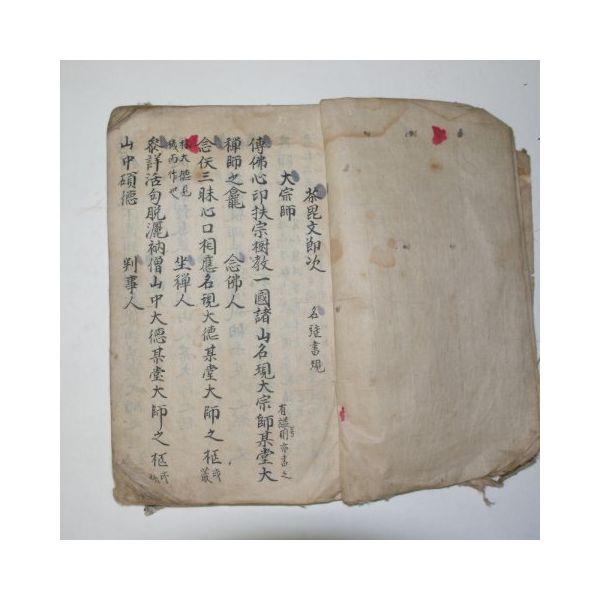 茶毘文節次　名旌書規
大宗師　有諡号則亦書之
傳佛心印扶宗樹教一國諸山名現大宗師某堂大
禪師之龕　念佛人
念仸三昧心口相應名現大德某堂大師之柩 或叢
林大德見
機而作也　坐禪人
叅詳活句脫灑衲僧山中大德某堂大師之柩 或
山中碩德　判事人